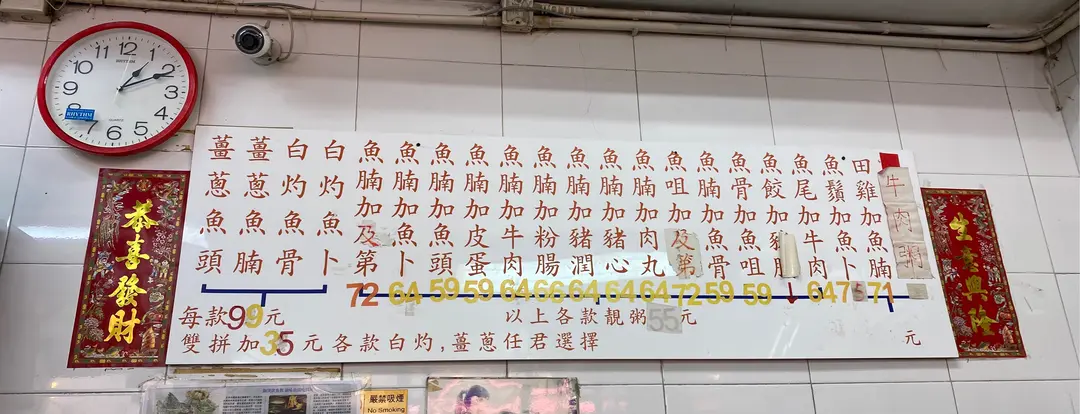 12
1
2
3
4
5
6
7
8
9
10
11
RHYTHM
RHYTHM
恭喜發財
薑蔥魚頭
薑蔥魚腩
白灼魚骨
白灼魚卜
魚腩加及第
魚腩加魚卜
魚腩加魚頭
魚腩加皮蛋
魚腩加牛肉
魚腩加粉腸
魚腩加豬潤
魚腩加豬心
魚腩加肉丸
魚咀加及第
魚腩加魚骨
魚骨加魚咀
魚餃加
魚尾加牛肉
魚鬚加魚卜
田雞加魚腩
牛肉粥
72 64 59 59 64 66 64 64 64 72 59 59 64 71
每款99元
以上各款靚粥55元
雙拼加35元各款白灼,薑蔥任君選擇
元
生意興隆
嚴禁吸煙
No Smoking